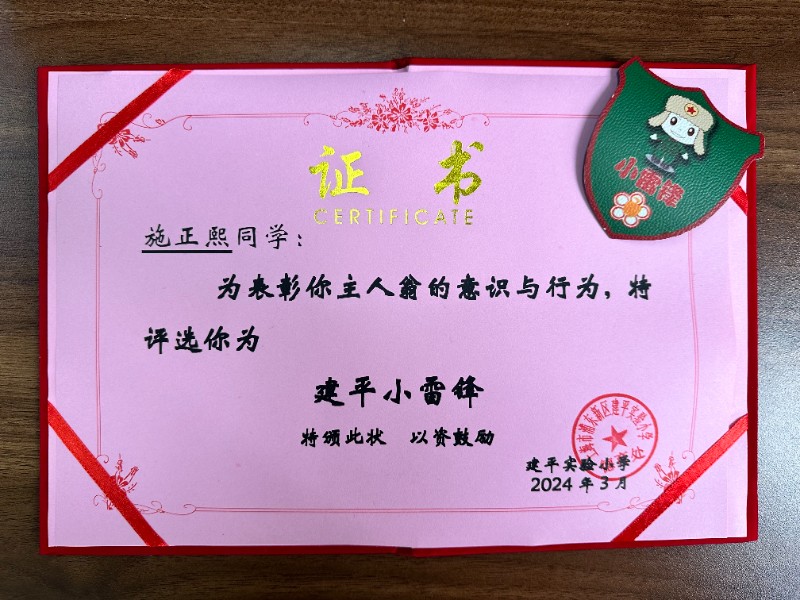 证 书
CERTIFICATE
小雷锋
施正熙同学：
为表彰你主人翁的意识与行为，特
评选你为
建平小雷锋
特颁此状 以资鼓励
市浦东新区建平实验小学
建平实验小学
2024 年 3 月